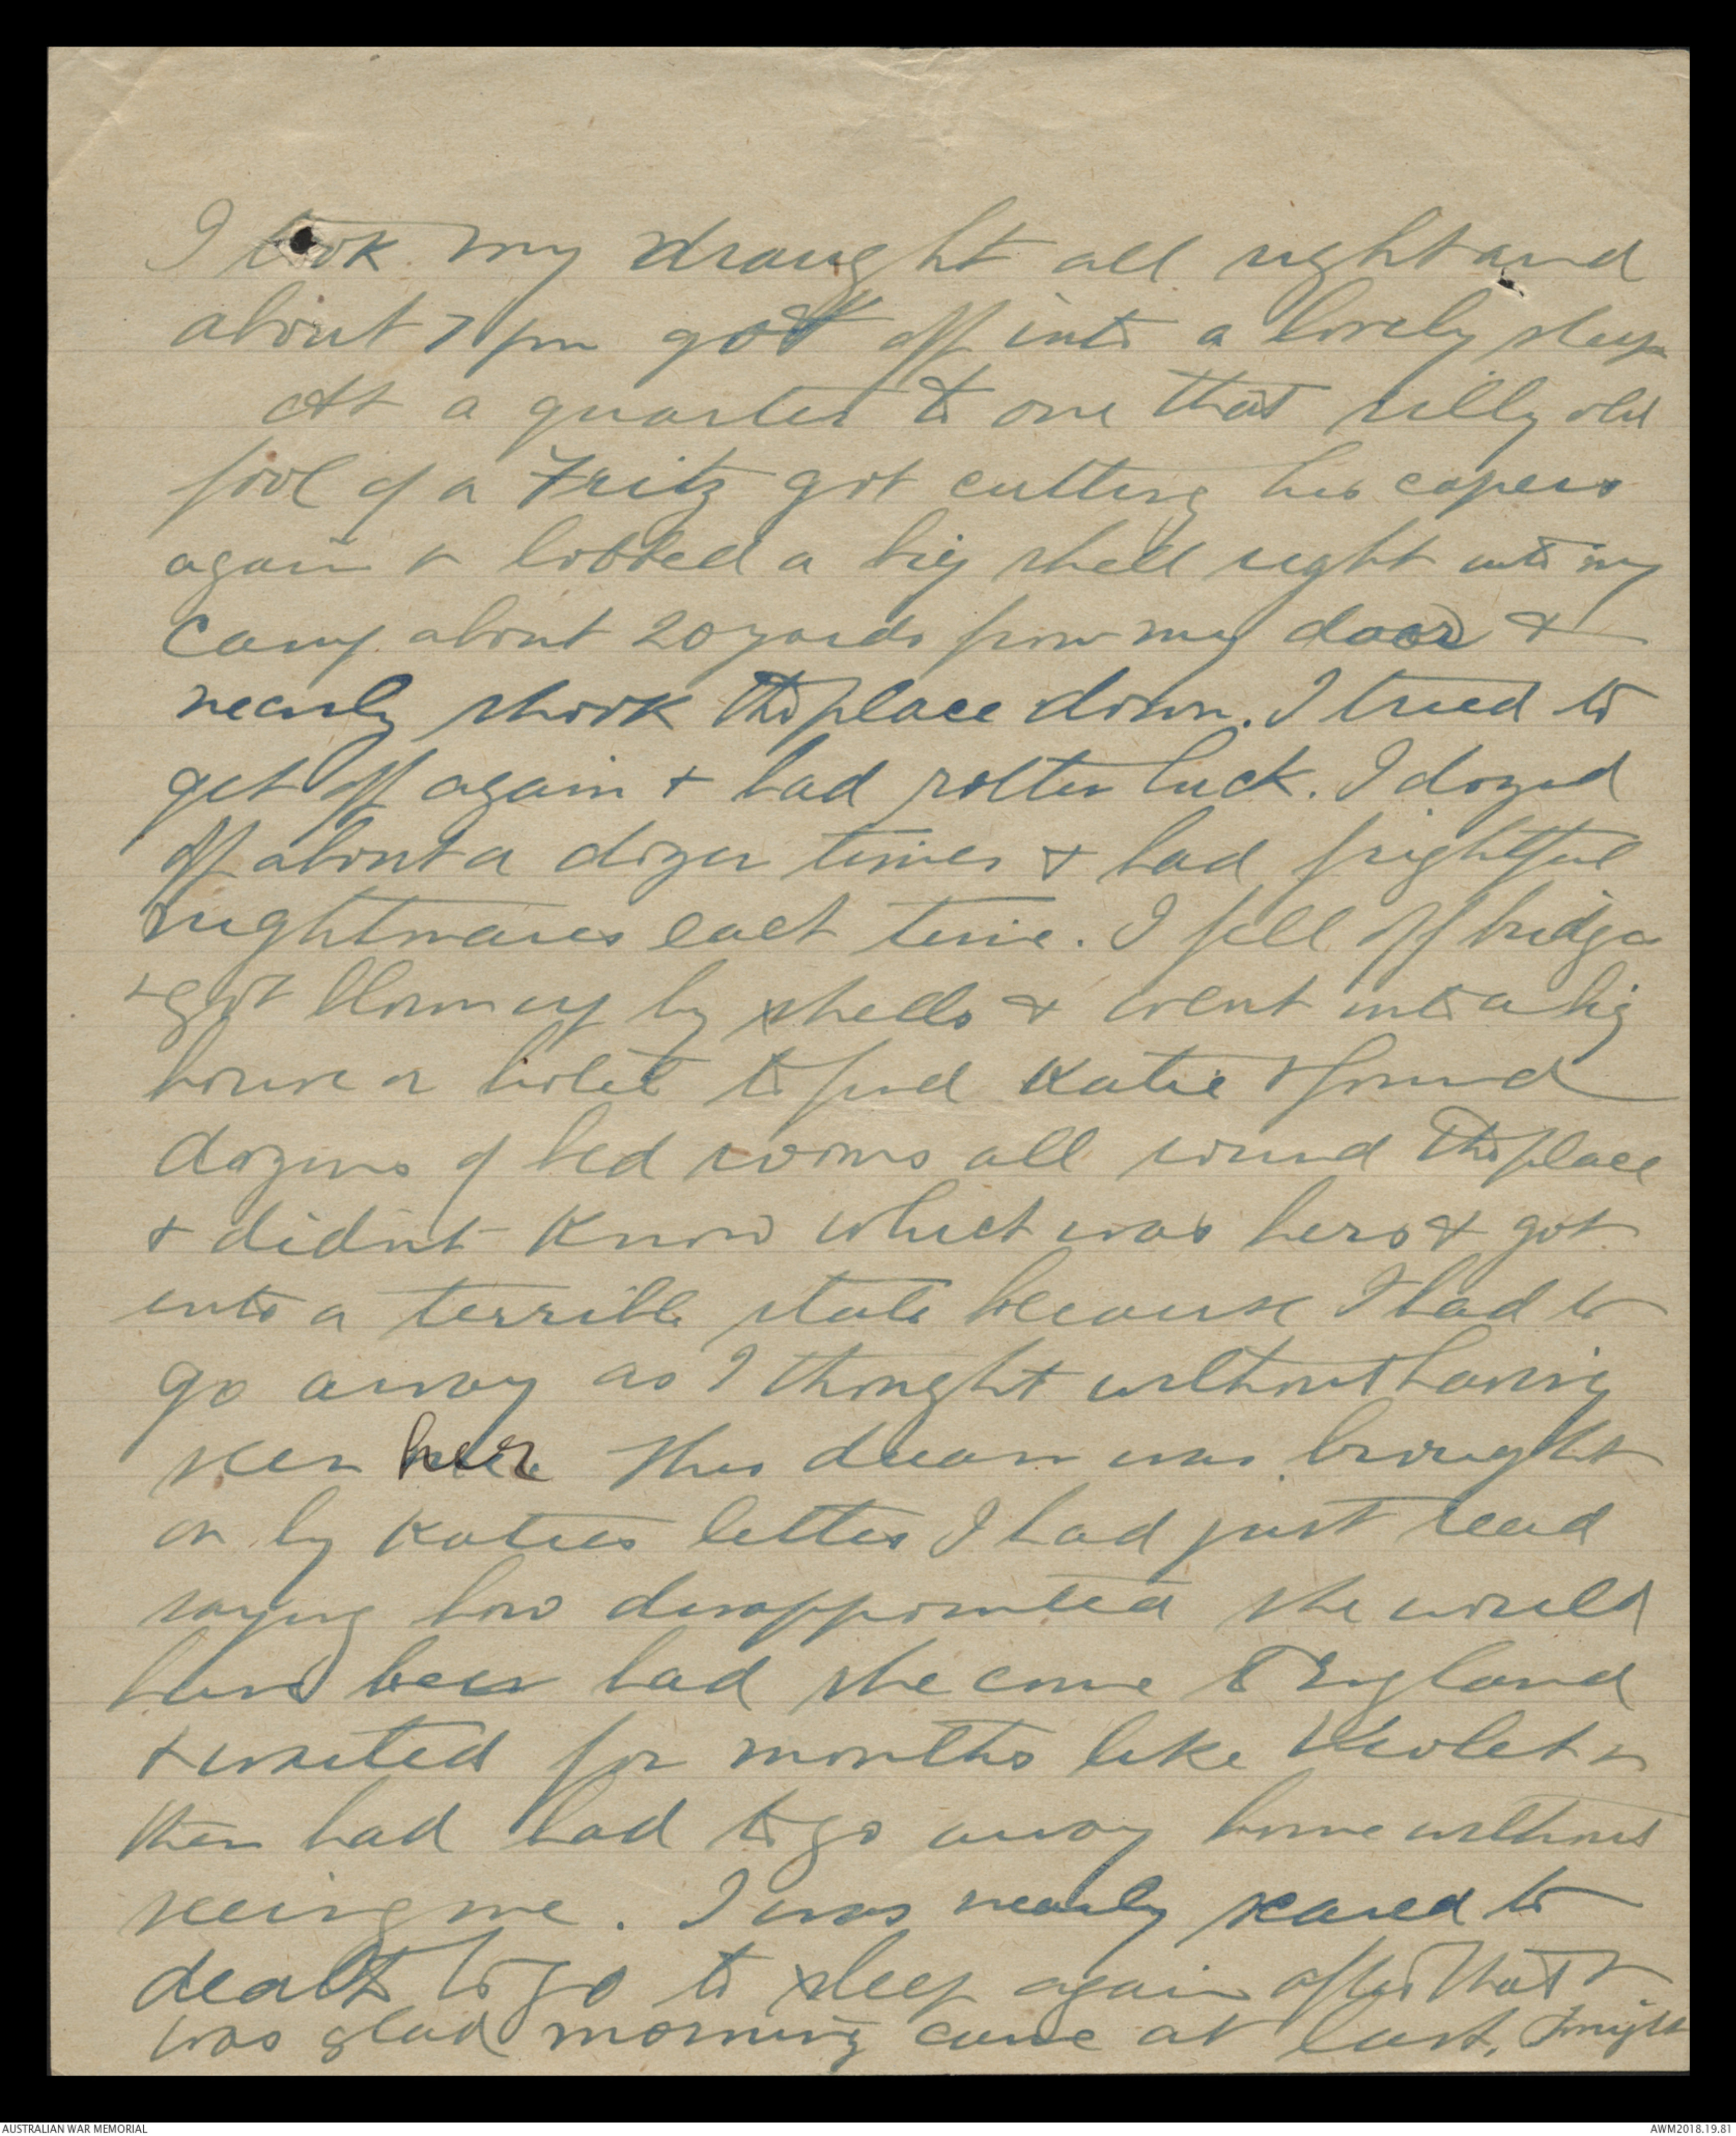 I took my draught all right and
about 7 pm got off into a lovely sleep
At a quarter to one that silly old
fool of a Fritz got cutting his capers
again & lobbed a big shell right into my
camp about 20 yards from my door &
nearly shook the place down. I tried to
get off again & had rotten luck. I dozed
off about a dozen times & had frightful
nightmares each time. I fell off bridges
& got blown up by shells & went into a big
house or hotel to find Katie & found
dozens of bed rooms all round the place
& didn't know which was hers & got
into a terrible state because I had to
go away as I thought without having
seen her This dream was brought
on by Katies letter I had just read
saying how disappointed she would
have been had she come to England
& waited for months like Violet &
then had had to go away home without
seeing me. I was nearly scared to
death to go to sleep again after that &
was glad morning came at last. Tonight
AUSTRALIAN WAR MEMORIAL
AWM2018.19.81